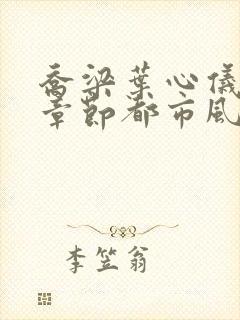 乔梁叶心仪
章节都市风
李笠翁